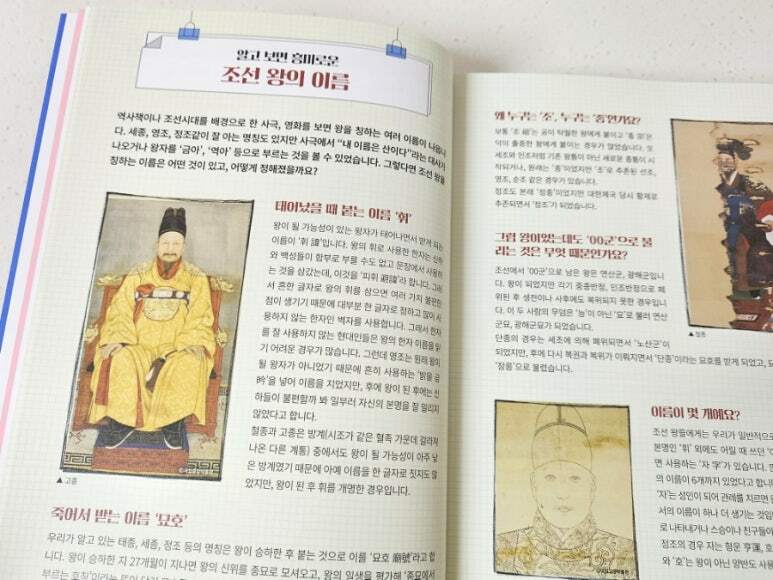 알고 보면 흥미로운
조선 왕의 이름
역사책이나 조선시대를 배경으로 한 사극, 영화를 보면 왕을 칭하는 여러 이름이 나옵니
다. 세종, 영조, 정조같이 잘 아는 명칭도 있지만 사극에서 “내 이름은 산이다”라는 대사가
나오거나 왕자를 ‘금아’, ‘역아’ 등으로 부르는 것을 볼 수 있었습니다. 그렇다면 조선 왕을
칭하는 이름은 어떤 것이 있고, 어떻게 정해졌을까요?
태어났을 때 붙는 이름 ‘휘’
왕이 될 가능성이 있는 왕자가 태어나면서 받게 되는
이름이 ‘휘 諱’입니다. 왕의 휘로 사용한 한자는 신하
와 백성들이 함부로 부를 수도 없고 문장에서 사용하
는 것을 삼갔는데, 이것을 ‘피휘 避諱’라 합니다. 그래
서 흔한 글자로 왕의 휘를 삼으면 여러 가지 불편한
점이 생기기 때문에 대부분 한 글자로 정하고 많이 사
용하지 않는 한자인 벽자를 사용합니다. 그래서 한자
를 잘 사용하지 않는 현대인들은 왕의 한자 이름을 읽
기 어려운 경우가 많습니다. 그런데 영조는 원래 왕이
될 왕자가 아니었기 때문에 흔히 사용하는 ‘밝을 금
昑’을 넣어 이름을 지었지만, 후에 왕이 된 후에는 신
하들이 불편할까 봐 일부러 자신의 본명을 잘 알리지
않았다고 합니다.
철종과 고종은 방계(시조가 같은 혈족 가운데 갈라져
나온 다른 계통) 중에서도 왕이 될 가능성이 아주 낮
은 방계였기 때문에 아예 이름을 한 글자로 짓지도 않
았지만, 왕이 된 후 휘를 개명한 경우입니다.
▲ 고종
죽어서 받는 이름 ‘묘호’
우리가 알고 있는 태종, 세종, 정조 등의 명칭은 왕이 승하한 후 붙는 것으로 이를 ‘묘호 廟號’라고 합
니다. 왕이 승하한 지 27개월이 지나면 왕의 신위를 종묘로 모셔오고, 왕의 일생을 평가해 ‘종묘에서
왜 누구는 ‘조’, 누구는 ‘종’인가요?
보통 ‘조 祖’는 공이 탁월한 왕에게 붙이고 ‘종 宗’은
덕이 출중한 왕에게 붙이는 경우가 많았습니다. 또
세조와 인조처럼 기존 왕통이 아닌 새로운 종통이 시
작되거나, 원래는 ‘종’이었지만 ‘조’로 추존된 선조,
영조, 순조 같은 경우가 있습니다.
정조도 본래 ‘정종’이었지만 대한제국 당시 황제로
추존되면서 ‘정조’가 되었습니다.
그럼 왕이었는데도 ‘00군’으로 불
리는 것은 무엇 때문인가요?
조선에서 ‘00군’으로 남은 왕은 연산군, 광해군입니
다. 왕이 되었지만 각기 중종반정, 인조반정으로 폐
위된 후 생전이나 사후에도 복위되지 못한 경우입니
다. 이 두 사람의 무덤은 ‘능’이 아닌 ‘묘’로 불러 연산
군묘, 광해군묘가 되었습니다.
단종의 경우는 세조에 의해 폐위되면서 ‘노산군’이
되었지만, 후에 다시 복권과 복위가 이뤄지면서 ‘단종’이라는 묘호를 받게 되었고,
‘장릉’으로 불렸습니다.
이름이 몇 개예요?
조선 왕들에게는 우리가 일반적으
본명인 ‘휘’ 외에도 어릴 때 쓰던
면 사용하는 ‘자 字’가 있습니다.
의 이름이 6개까지 있었다고 합니다.
‘자’는 성인이 되어 관례를 치르면
서의 이름이 하나 더 생기는 것입
로 나타내거나 스승이나 친구들이
정조의 경우 자는 형운 亨運,
와 ‘호’는 왕이 아닌 양반도 사용